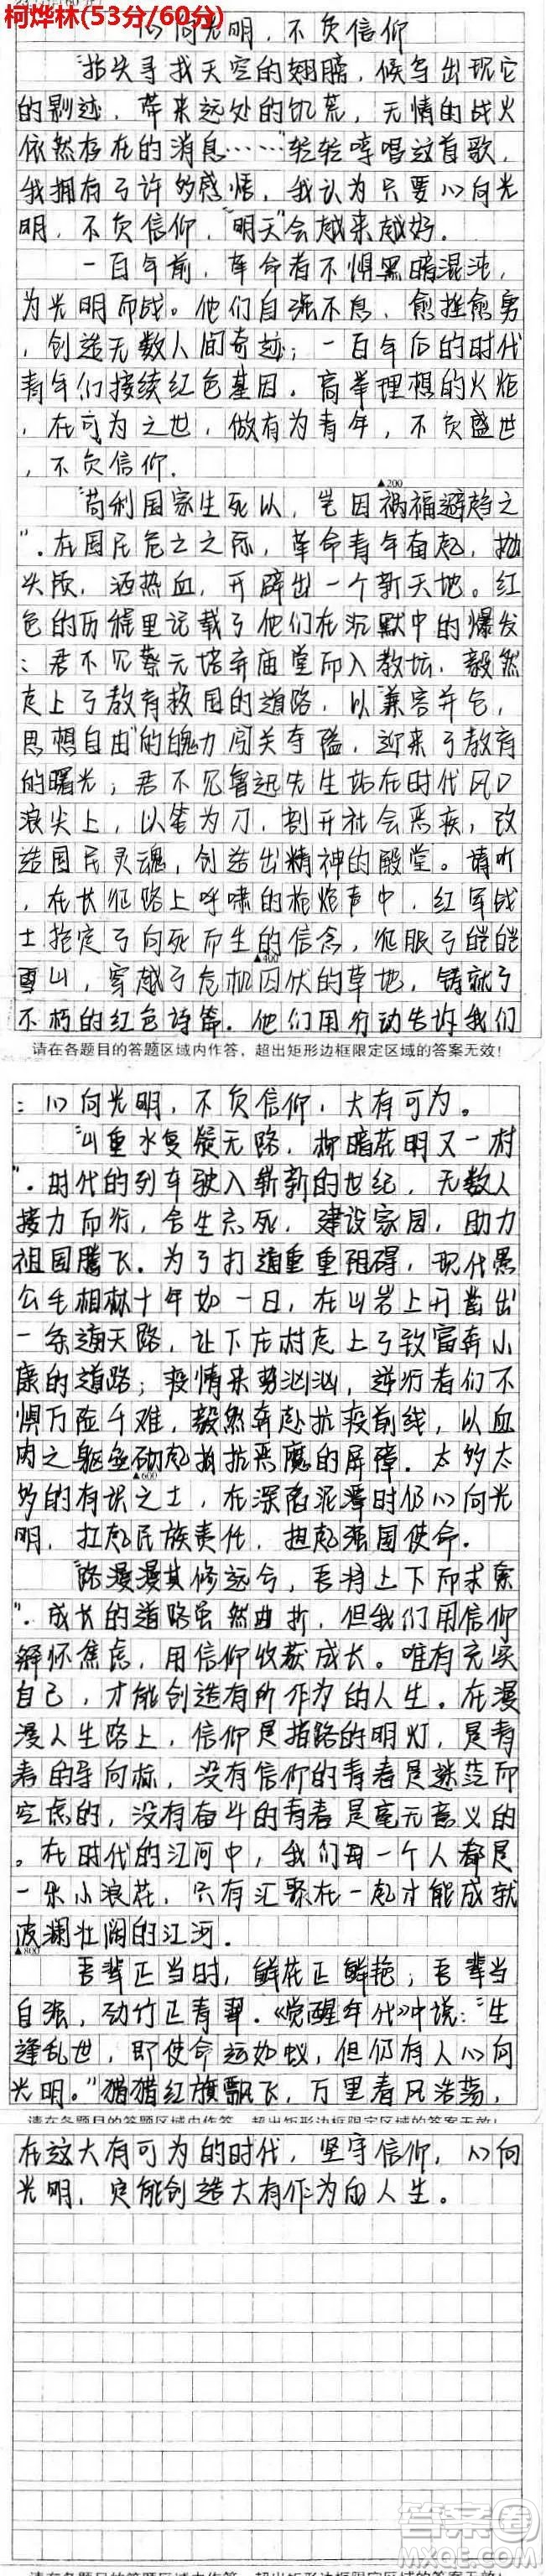 柯烨林(53分/60分)
心向光明，不负信仰
“指尖寻找天空的翅膀，候鸟出现它
的影迹，带来远处的饥荒，无情的战火
依然存在的消息……”轻轻哼唱这首歌，
我拥有了许多感悟，我认为只要心向光
明，不负信仰，“明天”会越来越好。
一百年前，革命者不惧黑暗混沌，
为光明而战。他们自强不息、愈挫愈勇
，创造无数人间奇迹；一百年后的时代
青年们接续红色基因，高举理想的火炬
，在可为之世，做有为青年，不负盛世
，不负信仰。
▲200
“苟利国家生死以，岂因祸福避趋之
”。在国民危亡之际，革命青年奋起，抛
头颅，洒热血，开辟出一个新天地。红
色的历程里记载了他们在沉默中的爆发
：君不见蔡元培弃庙堂而入教坛，毅然
走上了教育救国的道路，以“兼容并包，
思想自由”的魄力闯关夺隘，迎来了教育
的曙光；君不见鲁迅先生站在时代风口
浪尖上，以笔为刀，剖开社会恶疾，改
造国民灵魂，创造出精神的殿堂。请听
，在长征路上呼啸的枪炮声中，红军战
士抱定了向死而生的信念，征服了皑皑
▲400
雪山，穿越了危机四伏的草地，铸就了
不朽的红色诗篇。他们用行动告诉我们
请在各题目的答题区域内作答，超出矩形边框限定区域的答案无效！
：心向光明，不负信仰，大有可为。
“山重水复疑无路，柳暗花明又一村
”。时代的列车驶入崭新的世纪，无数人
接力而行，舍生忘死，建设家园，助力
祖国腾飞。为了打通重重阻碍，现代愚
公毛相林十年如一日，在山岩上开凿出
一条通天路，让下庄村走上了致富奔小
康的道路；疫情来势汹汹，逆行者们不
惧万险千难，毅然奔赴抗疫前线，以血
肉之躯垒砌起抵抗恶魔的屏障。太多太
▲600
多的有识之士，在深陷泥潭时仍心向光
明，扛起民族责任，担起强国使命。
“路漫漫其修远兮，吾将上下而求索
”。成长的道路虽然曲折，但我们用信仰
释怀焦虑，用信仰收获成长。唯有充实
自己，才能创造有所作为的人生。在漫
漫人生路上，信仰是指路的明灯，是青
春的导向标，没有信仰的青春是迷茫而
空虚的，没有奋斗的青春是毫无意义的
。在时代的江河中，我们每一个人都是
一朵小浪花，只有汇聚在一起才能成就
波澜壮阔的江河。
▲800
吾辈正当时，鲜花正鲜艳；吾辈当
自强，劲竹正青翠。《觉醒年代》中说：“生
逢乱世，即使命运如蚁，但仍有人心向
光明。”猎猎红旗飘飞，万里春风浩荡，
请在各题目的答题区域内作答，超出矩形边框限定区域的答案无效！
在这大有可为的时代，坚守信仰，心向
光明，定能创造大有作为的人生。
答案圈
MXQE.COM